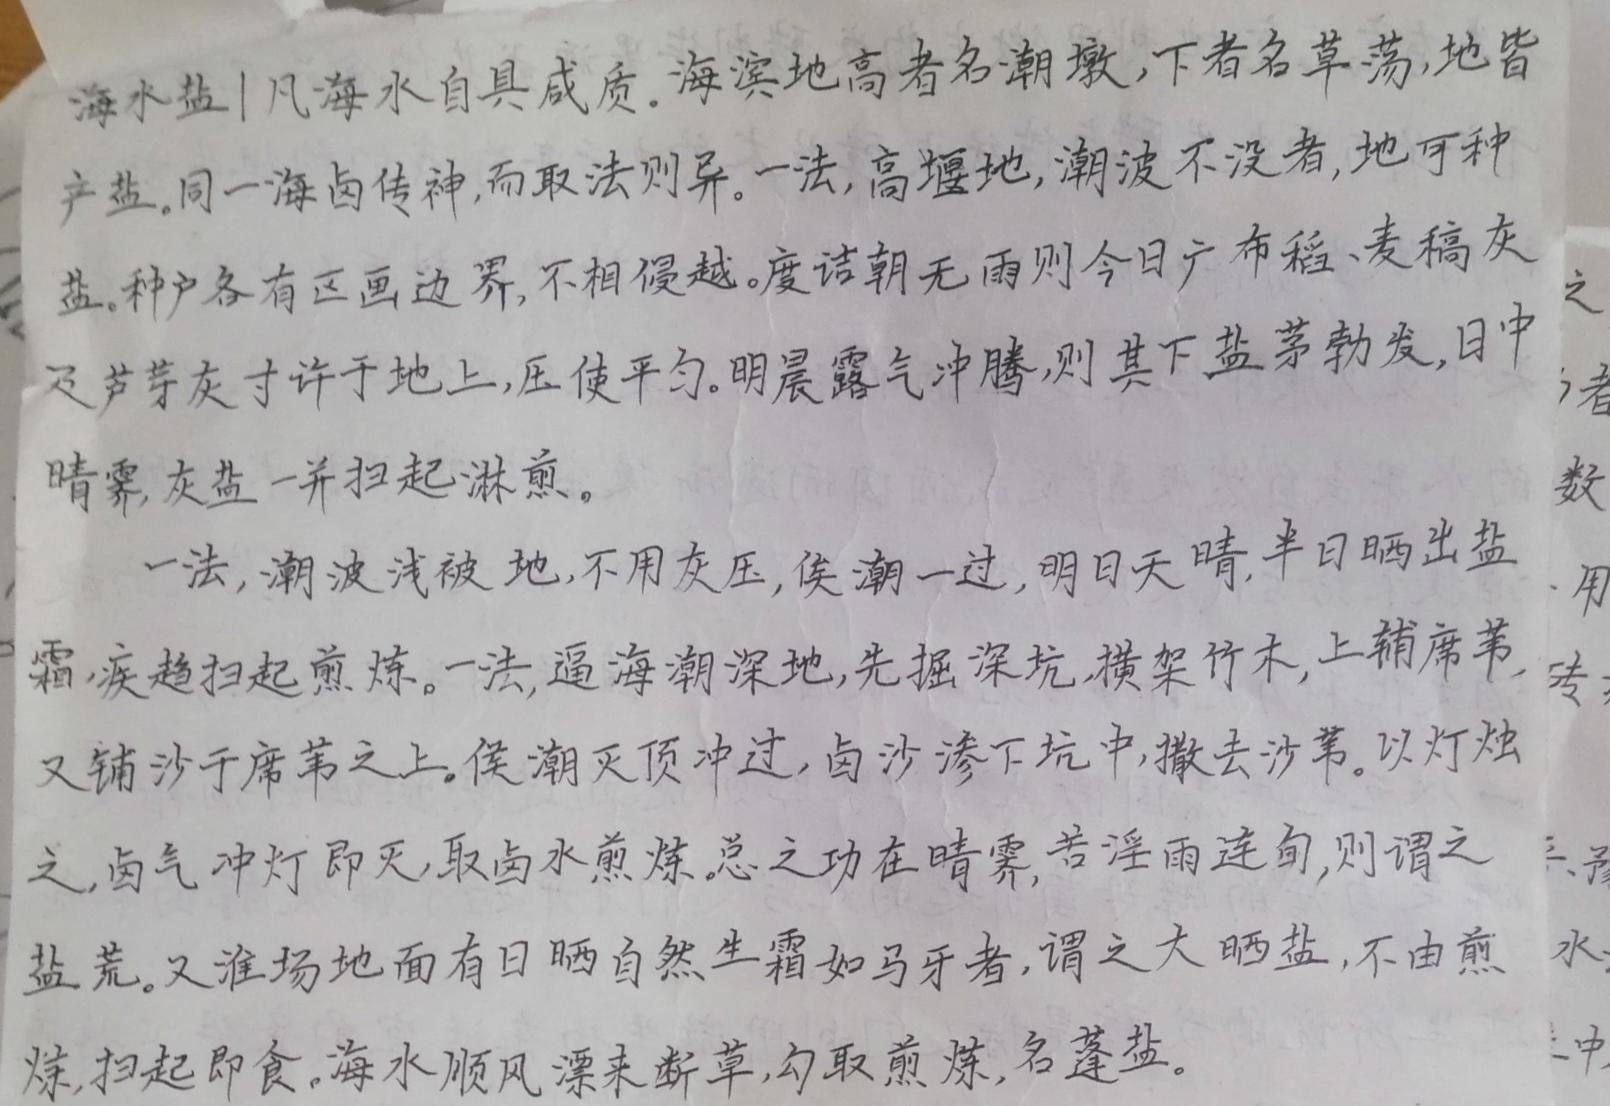 海水盐|凡海水自具咸质。海滨地高者名潮墩,下者名草荡,地皆
产盐。同一海卤传神,而取法则异。一法,高堰地,潮波不没者,地可种
盐。种户各有区画边界,不相侵越。度诘朝无雨则今日广布稻、麦稿灰
及芦芽灰寸许于地上,压使平匀。明晨露气冲腾,则其下盐茅勃发,日中
晴霁,灰盐一并扫起淋煎。
一法,潮波浅被地,不用灰压,俟潮一过,明日天晴,半日晒出盐
霜,疾趋扫起煎炼。一法,逼海潮深地,先掘深坑,横架竹木,上铺席苇,
又铺沙于席苇之上。俟潮灭顶冲过,卤沙渗下坑中,撒去沙苇。以灯烛
之,卤气冲灯即灭,取卤水煎炼。总之功在晴霁,若淫雨连旬,则谓之
盐荒。又淮场地面有日晒自然生霜如马牙者,谓之大晒盐,不由煎
炼,扫起即食。海水顺风漂来断草,勾取煎炼,名蓬盐。
之
者
数
用
砖
水
中